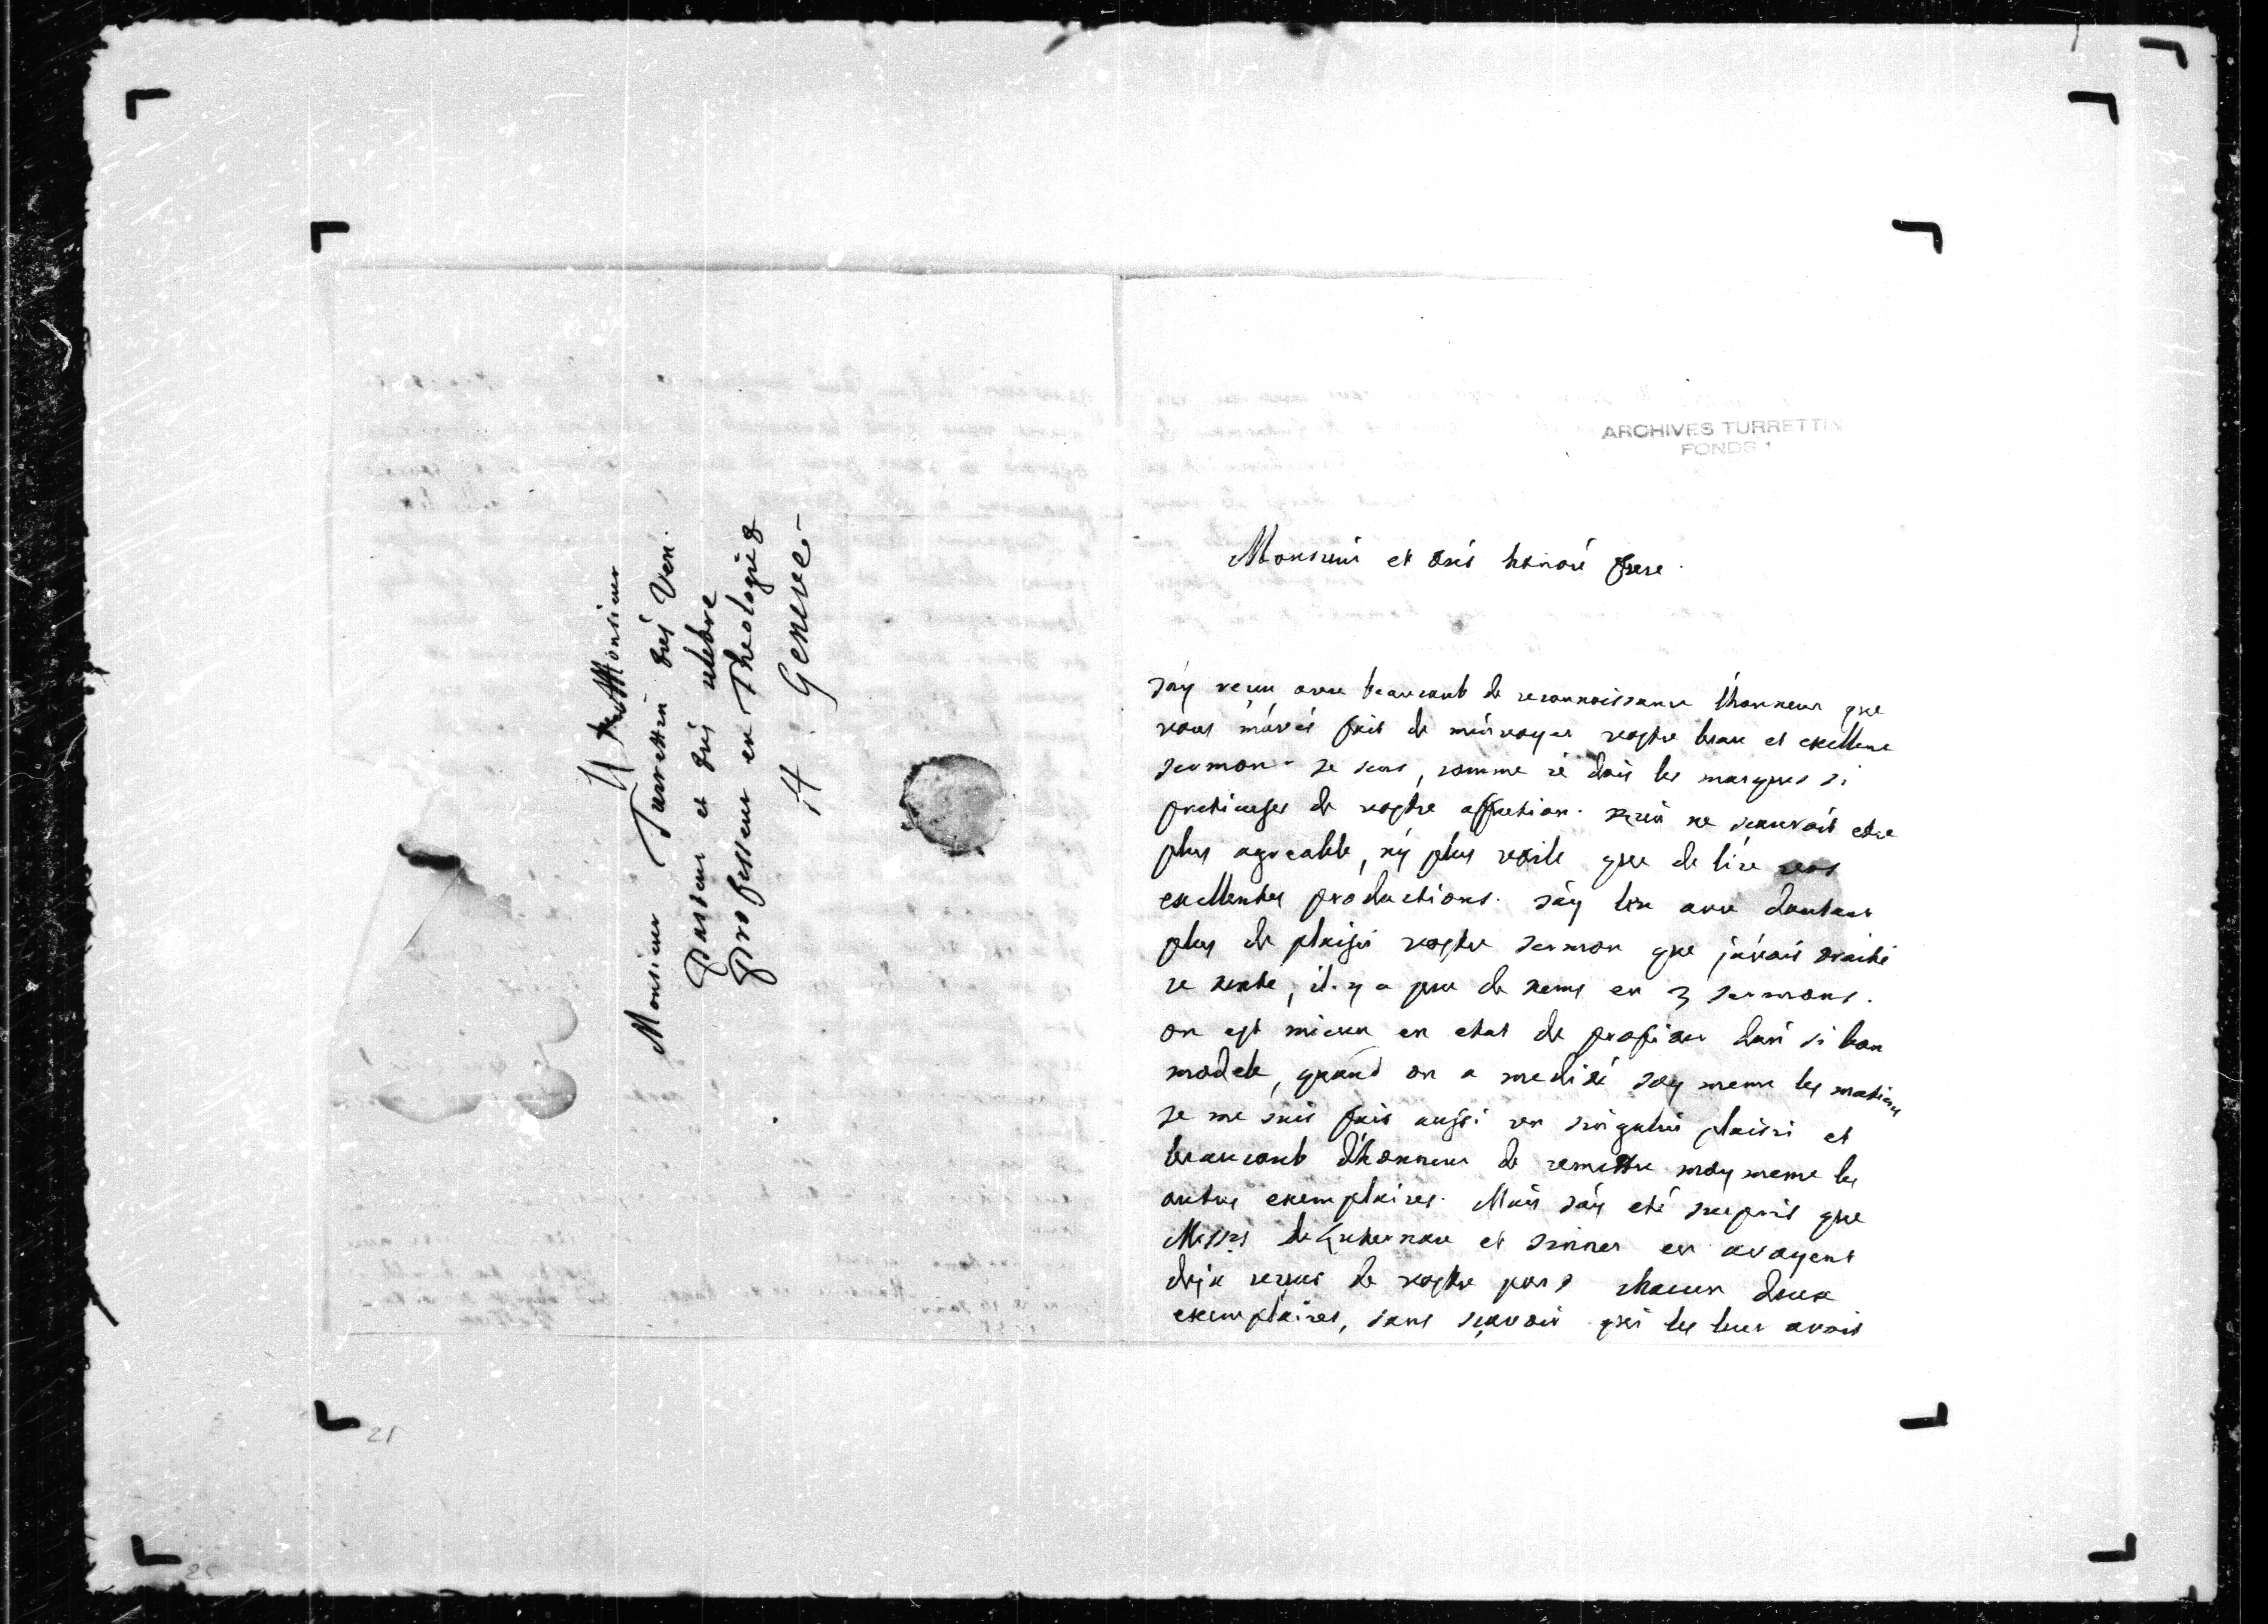 A Monsieur
Monsieur Turrettin trés Ven.
Pasteur et trés celebre
Professeur en Theologie
A Geneve
ARCHIVES TURRETTIN
FONDS 1
Monsieur et trés honoré frere.
J'ay receu avec beaucoub de reconnoissance l'honneur que
vous m'avés fait de m'envoyer vostre beau et exellent
sermon. Je sens, comme je dois les marques si
pretieuses de vostre affection. Rien ne scauroit etre
plus agreable, ny plus utile que de lire vos
exellentes productions. J'ay leu avec dautant
plus de plaisir vostre sermon que j'avois traitté
ce texte, il y a peu de tems en 3 sermons.
on est mieux en etat de profiter d'un si bon
modele, quand on a medité soy meme les matieres
Je me suis fait aussi un singulier plaisir et
beaucoub d'honneur de remettre moy meme les
autres exemplaires. Mais j'ay eté surpris que
Messrs de et Sinner en avoyent
deja receus de vostre part chacun deux
exemplaires, sans scavoir qui les leur avoit
21
25